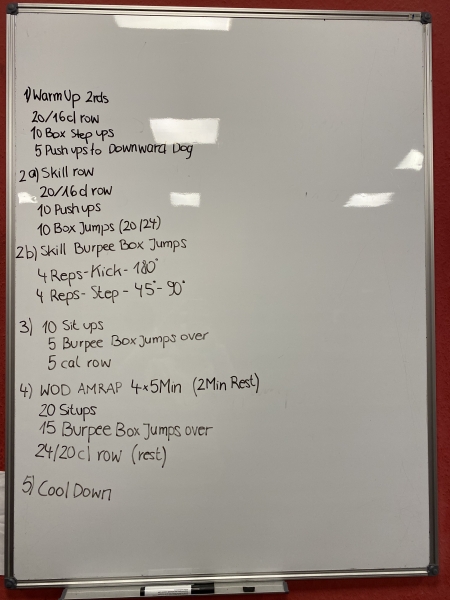 1) Warm Up 2rds
20/16cl row
10 Box Step ups
5 Push ups to Downward Dog
2a) Skill row
20/16cl row
10 Push ups
10 Box Jumps (20/24)
2b) Skill Burpee Box Jumps
4 Reps-Kick-180°
4 Reps-Step-45°-90°
3) 10 Sit ups
5 Burpee Box Jumps over
5 cal row
4) WOD AMRAP 4x5Min (2Min Rest)
20 Situps
15 Burpee Box Jumps over
24/20cl row (rest)
5) Cool Down